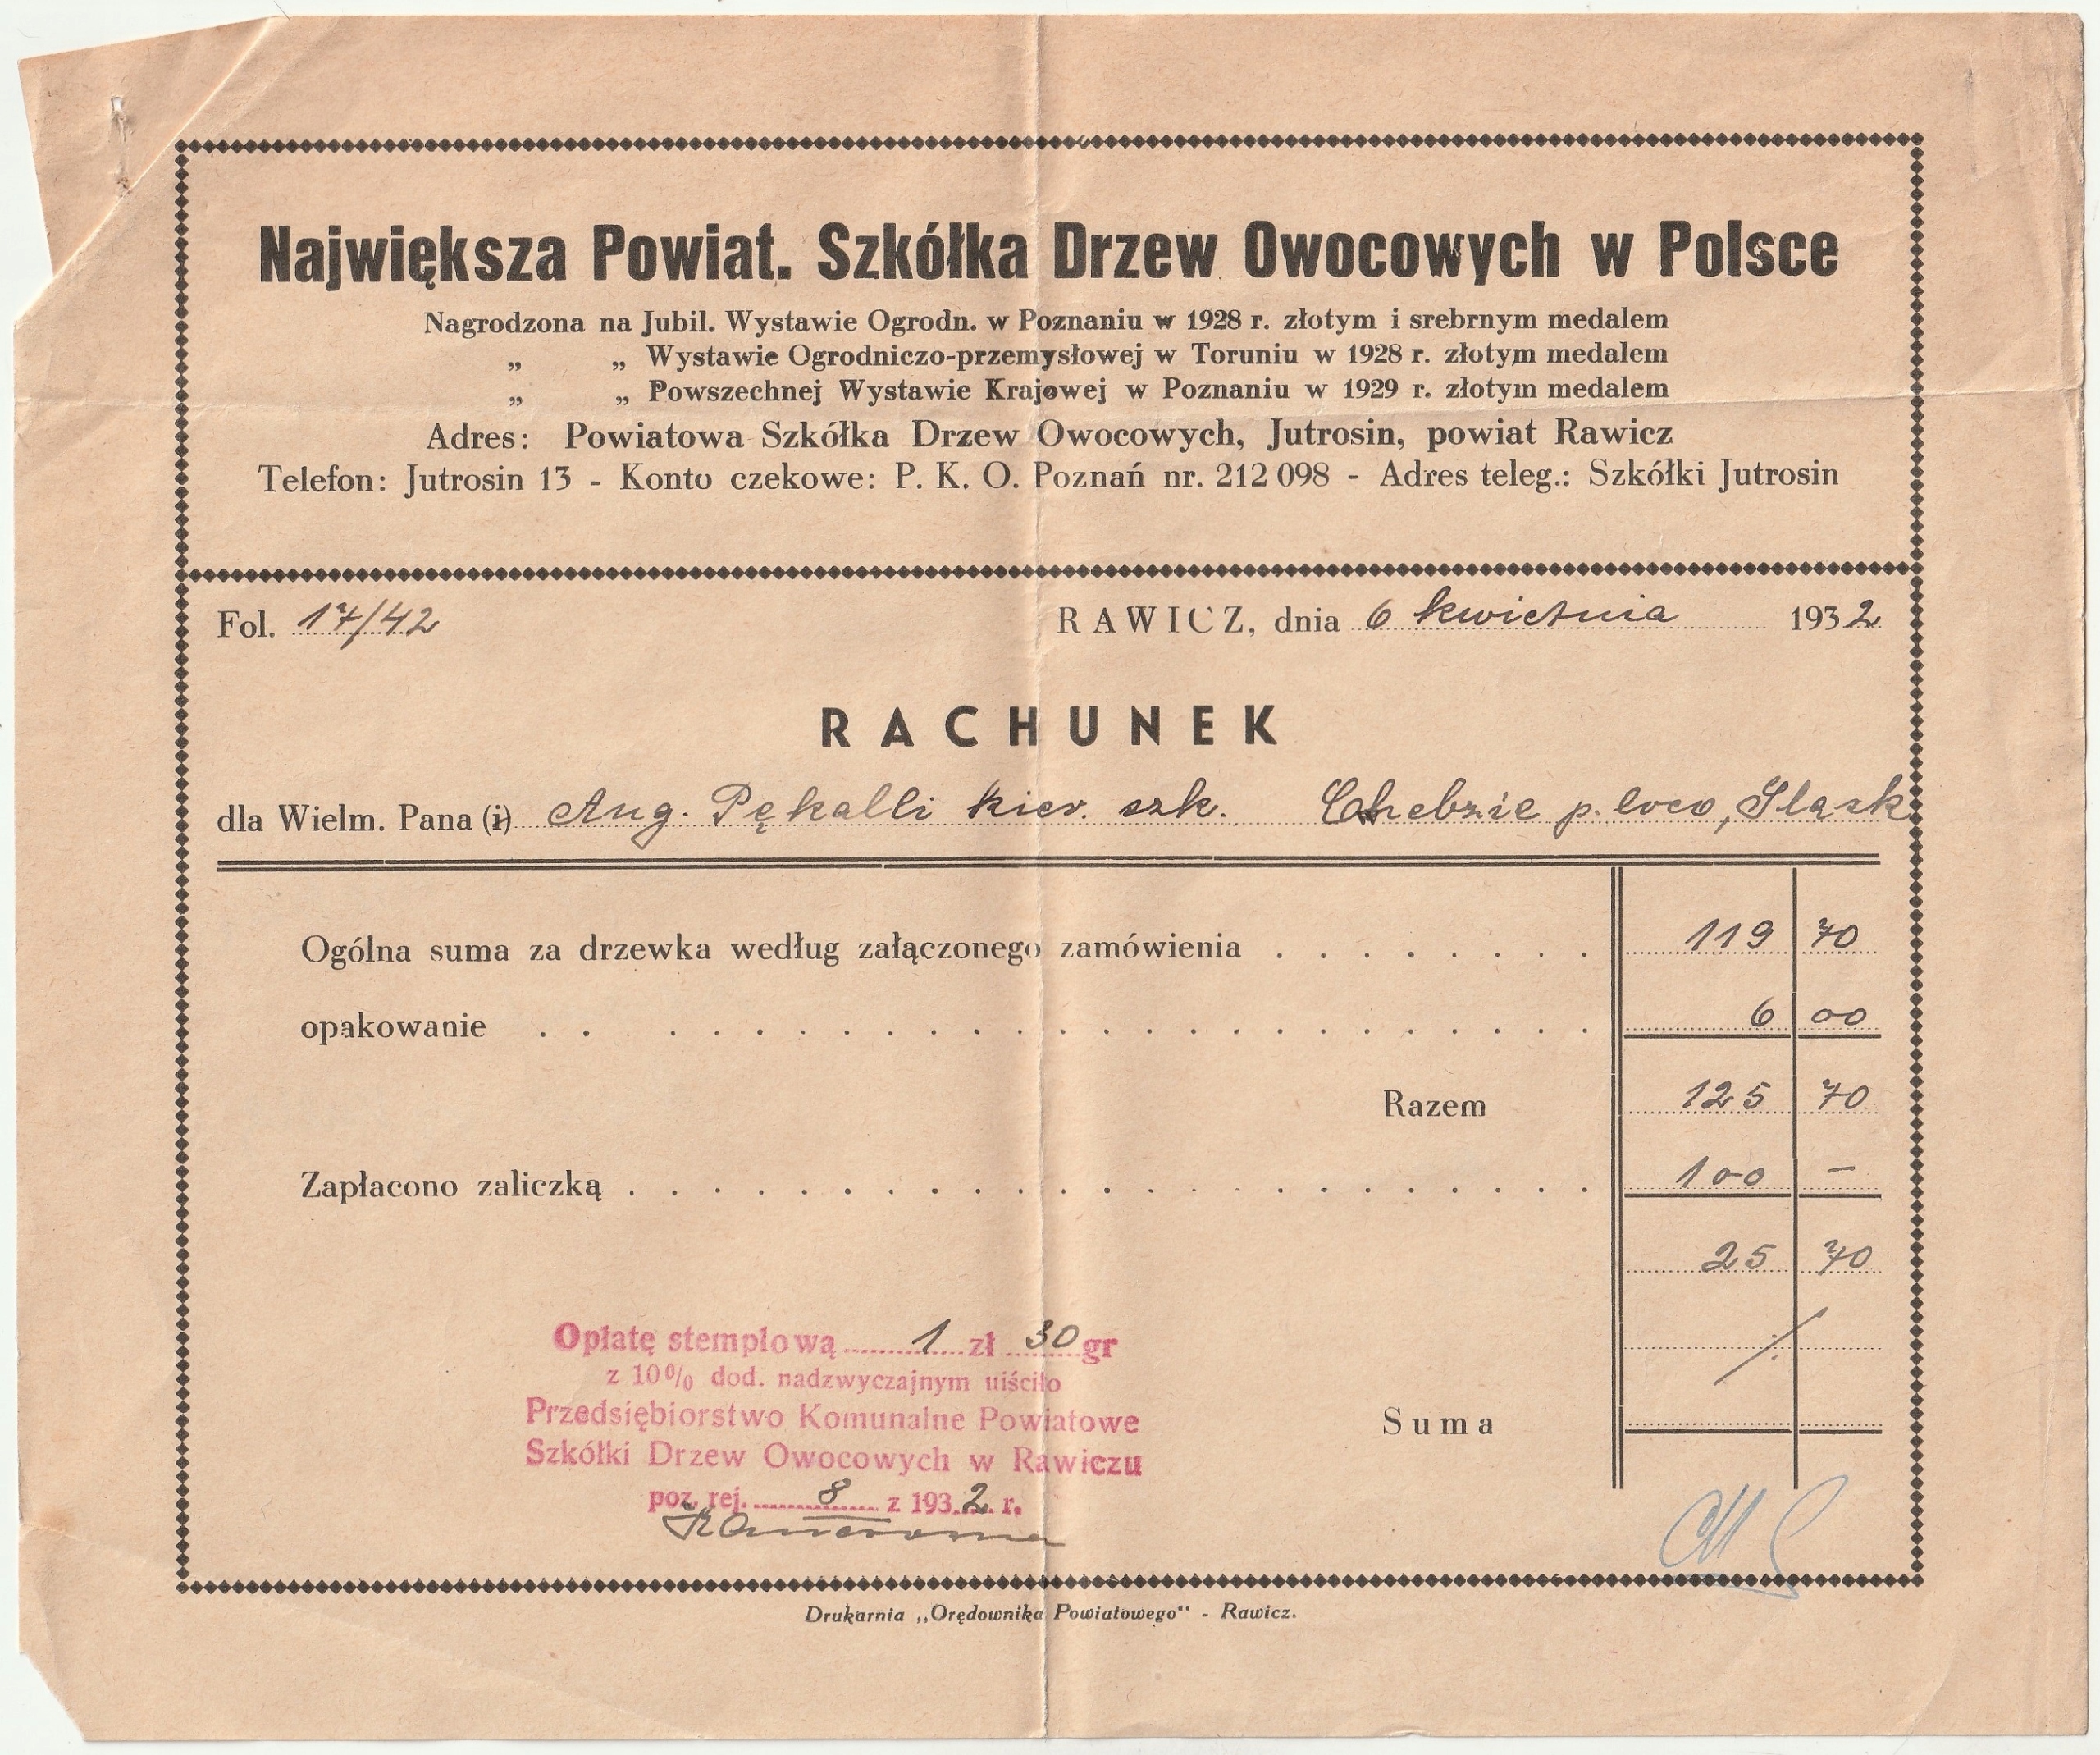 Największa Powiat. Szkółka Drzew Owocowych w Polsce
Nagrodzona na Jubil. Wystawie Ogrodn. w Poznaniu w 1928 r. złotym i srebrnym medalem
„ „ Wystawie Ogrodniczo-przemysłowej w Toruniu w 1928 r. złotym medalem
„ „ Powszechnej Wystawie Krajowej w Poznaniu w 1929 r. złotym medalem
Adres: Powiatowa Szkółka Drzew Owocowych, Jutrosin, powiat Rawicz
Telefon: Jutrosin 13 - Konto czekowe: P. K. O. Poznań nr. 212 098 - Adres teleg.: Szkółki Jutrosin
Fol. 17/42 RAWICZ, dnia 6 kwietnia 1932
RACHUNEK
dla Wielm. Pana (i) Aug. Pękalli kier. szk. Chebzie p. loco, Śląsk
Ogólna suma za drzewka według załączonego zamówienia . . . . . . . . 119 70
opakowanie . . . . . . . . . . . . . . . . . . . . . . . . 6 00
Razem 125 70
Zapłacono zaliczką . . . . . . . . . . . . . . . . . . . . . . . 100 —
25 70
Opłatę stemplową 1 zł 30 gr
z 10% dod. nadzwyczajnym uiściło
Przedsiębiorstwo Komunalne Powiatowe
Suma
Szkółki Drzew Owocowych w Rawiczu
poz. rej. 8 z 1932 r.
Drukarnia „Orędownika Powiatowego" - Rawicz.